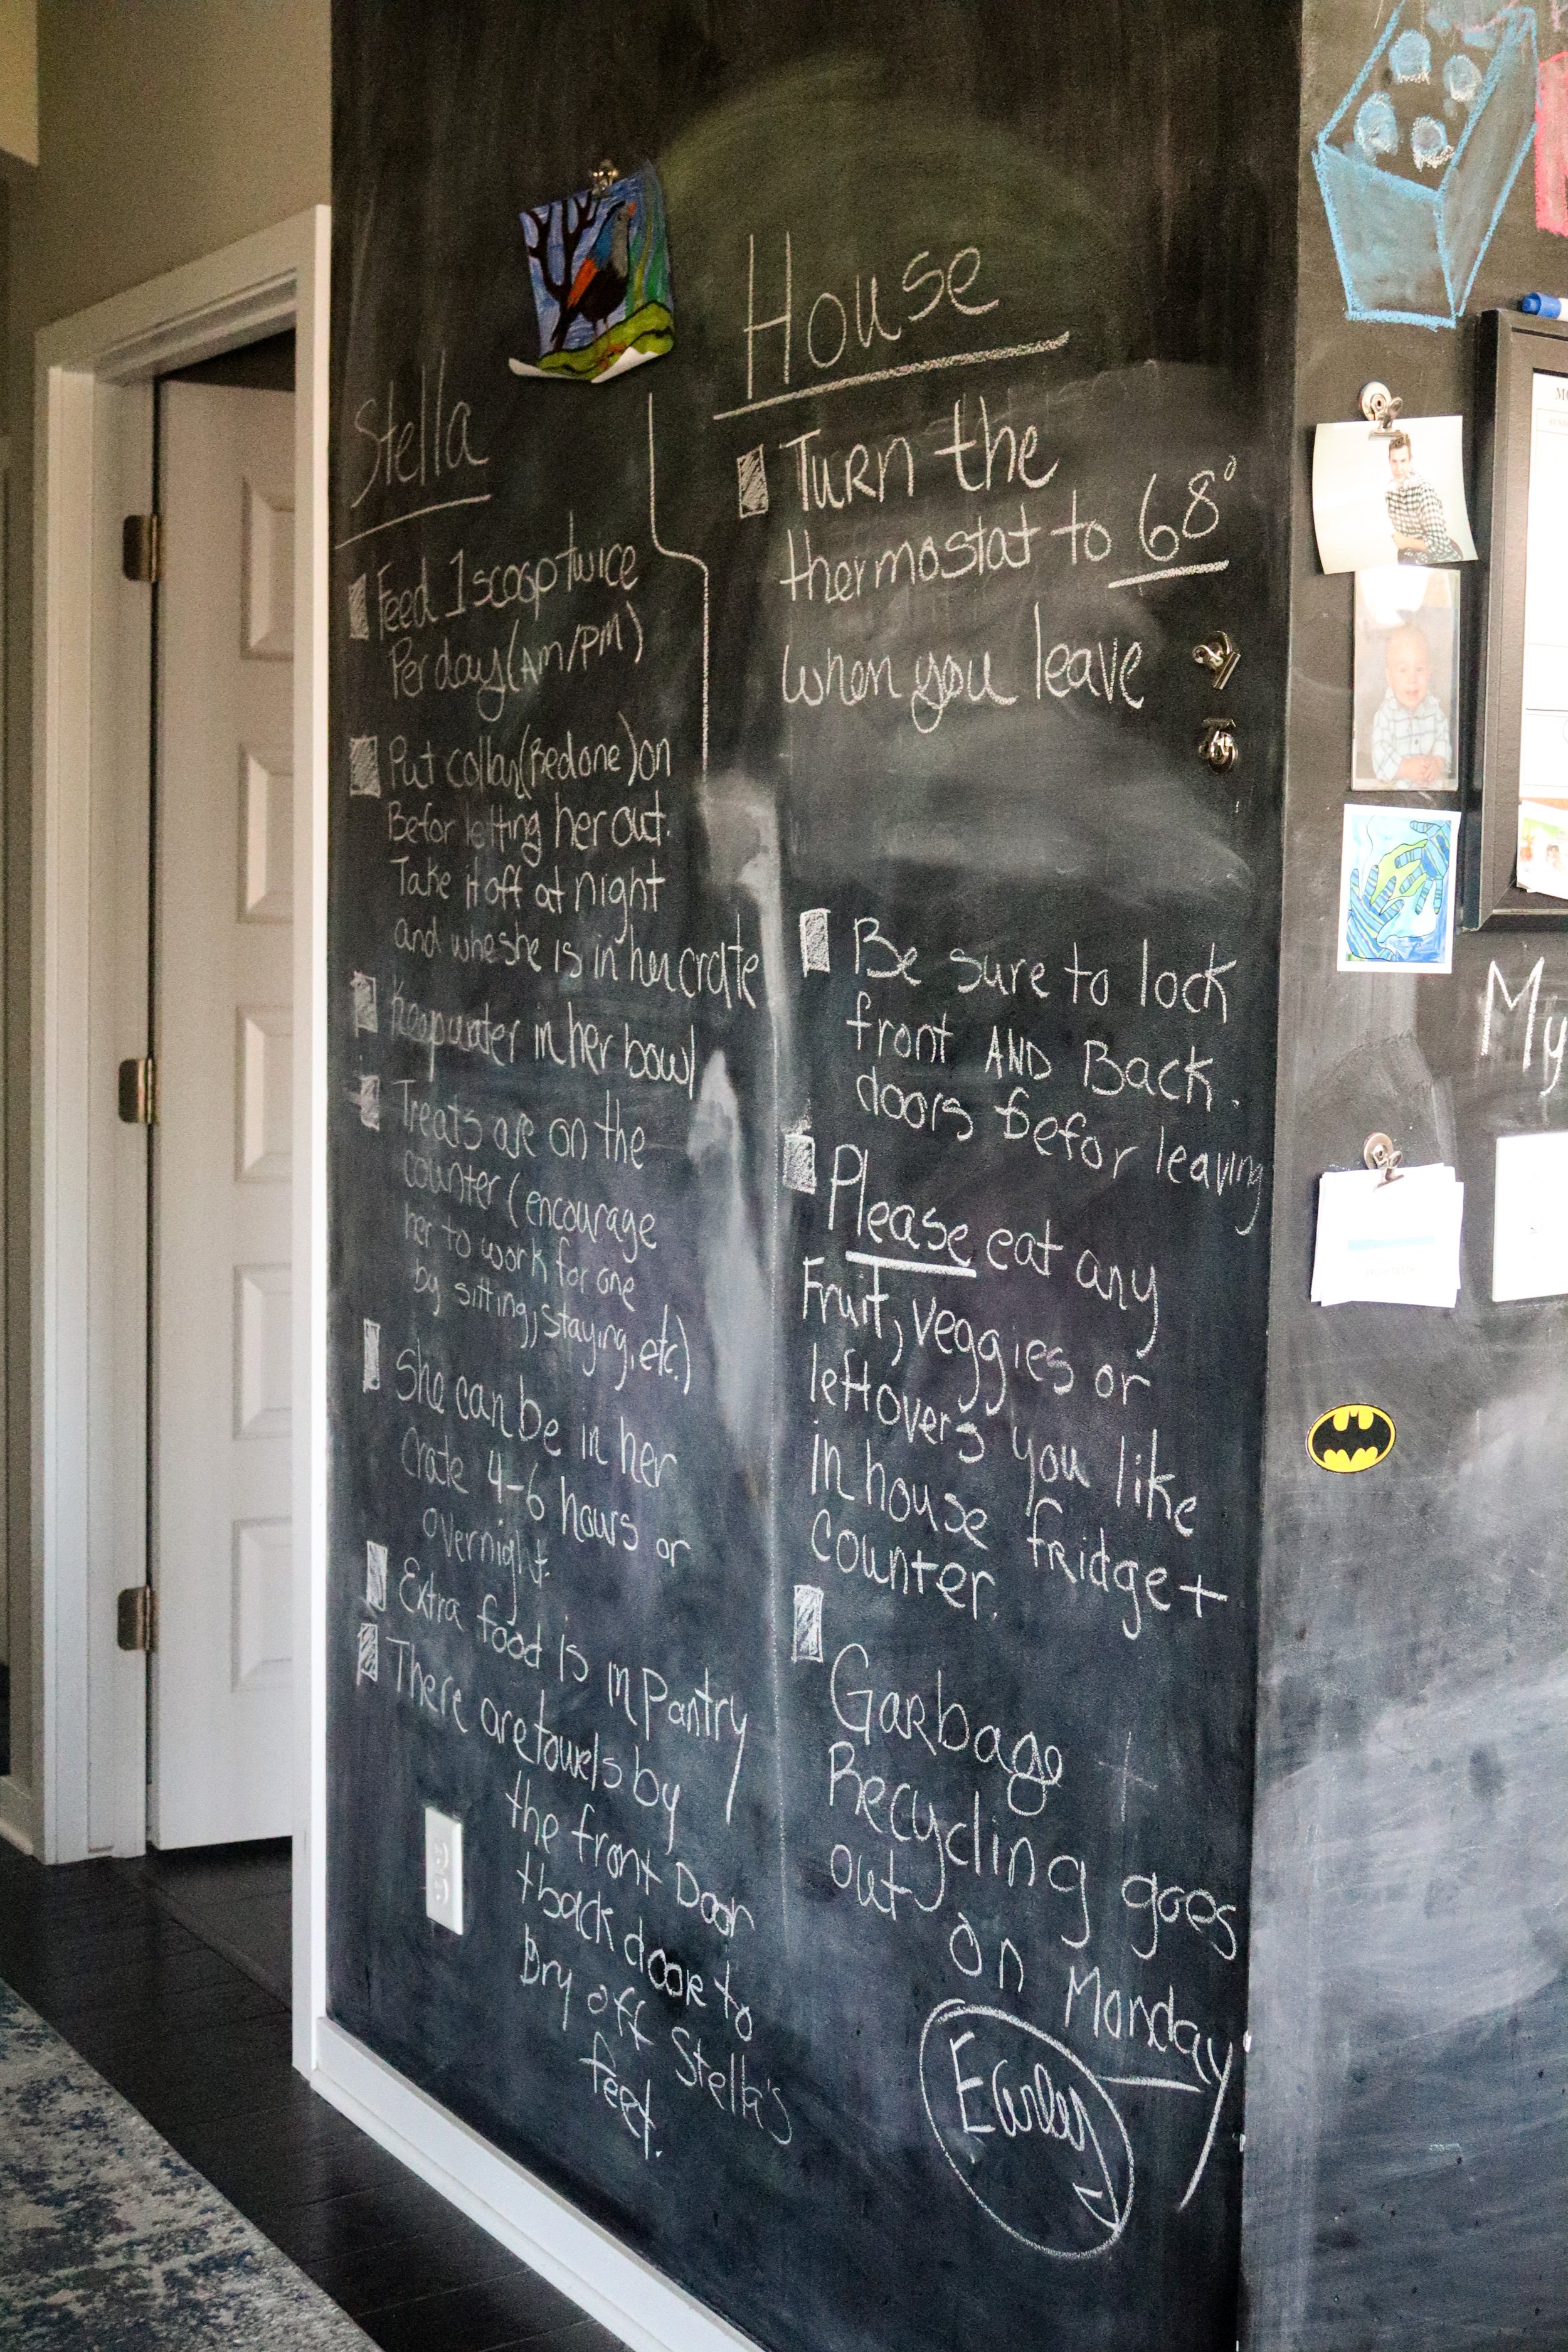 Stella
Feed 1 scoop twice
Per day (AM/PM)
Put collar (Red one) on
Befor letting her out.
Take it off at night
and whe she is in her crate
Keep water in her bowl
Treats are on the
counter (encourage
her to work for one
by sitting, staying, etc.)
She can be in her
crate 4-6 hours or
overnight.
Extra food is in Pantry
There are towels by
the front Door
+ back door to
Dry off Stella's
feet.
House
Turn the
thermostat to 68°
when you leave
Be sure to lock
front AND Back.
doors Befor leaving
Please eat any
Fruit, veggies or
leftovers you like
in house fridge +
counter.
Garbage +
Recycling goes
out
on Monday
Early
My